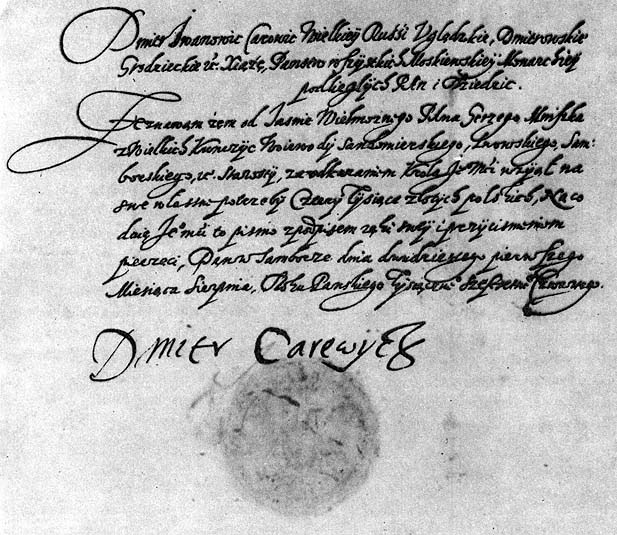 Dmitr Iwanowic Carowic Wielkiey Russi Uględzkie, Dmitrowskie
Grodzieckie etc. Xiążę, Panstw wszystkich Moskiewskiey Monarchiey
podległych Pan i Dziedzic.
Zeznawam żem od Jasnie Wielmożnego Pana Gerzego Mniszka
z Wielkich Kunczyc Woiewody Sandomierskiego, Lwowskiego, Sam-
borskiego, etc. Starosty, za wskazaniem Krola Je Mści wziął na
swe własne potrzeby Cztery Tysiące złotych polskich, Na co
daię Je mu to pismo z podpisem ręki mey i przycisnieniem
pieczęci, Dan w Samborze dnia dwudziestego pierwszego
Miesiąca Sierpnia, Roku Panskiego Tysiąc Szesetne Czwartego.
Dmitr Carewycz